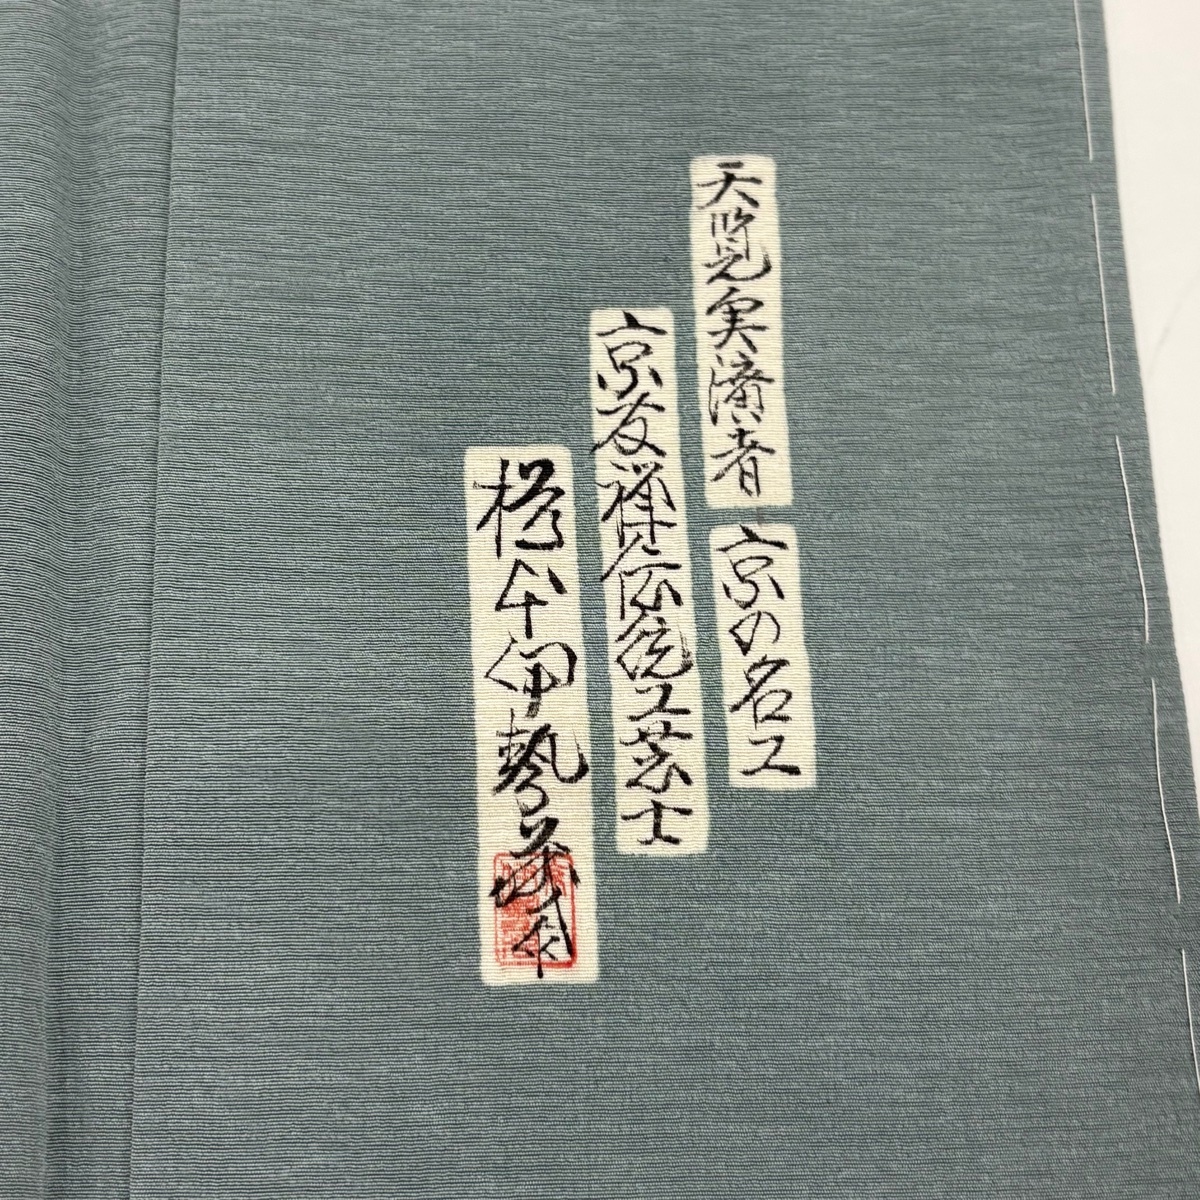 天覧実演者
京の名工
京友禅伝統工芸士
橋本伊勢
作